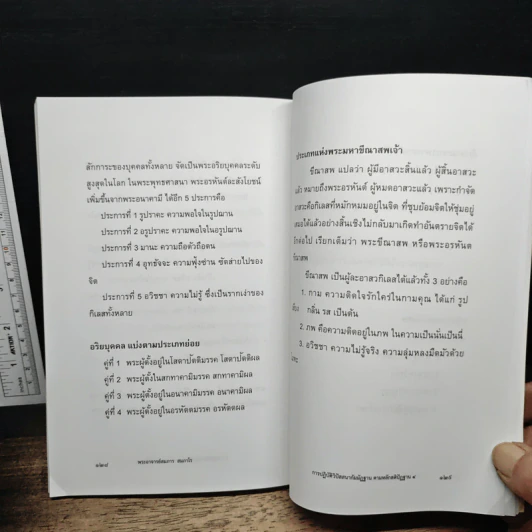 สักการะของบุคคลทั้งหลาย จัดเป็นพระอริยบุคคลระดับ
สูงสุดในโลก ในพระพุทธศาสนา พระอรหันต์ละสังโยชน์
เพิ่มขึ้นจากพระอนาคามี ได้อีก 5 ประการคือ
ประการที่ 1 รูปราคะ ความพอใจในรูปฌาน
ประการที่ 2 อรูปราคะ ความพอใจในอรูปฌาน
ประการที่ 3 มานะ ความถือตัวถือตน
ประการที่ 4 อุทธัจจะ ความฟุ้งซ่าน ซัดส่ายไปของ
จิต
ประการที่ 5 อวิชชา ความไม่รู้ ซึ่งเป็นรากเง่าของ
กิเลสทั้งหลาย
อริยบุคคล แบ่งตามประเภทย่อย
คู่ที่ 1 พระผู้ตั้งอยู่ในโสดาปัตติมรรค โสดาปัตติผล
คู่ที่ 2 พระผู้ตั้งในสกทาคามิมรรค สกทามิผล
คู่ที่ 3 พระผู้ตั้งอยู่ในอนาคามิมรรค อนาคามิผล
คู่ที่ 4 พระผู้ตั้งอยู่ในอรหัตตมรรค อรหัตตผล
๑๒๔ พระอาจารย์สมภาร สมภาโร
ประเภทแห่งพระมหาขีณาสพเจ้า
ขีณาสพ แปลว่า ผู้มีอาสวะสิ้นแล้ว ผู้สิ้นอาสวะ
แล้ว หมายถึงพระอรหันต์ ผู้หมดอาสวะแล้ว เพราะกำจัด
อาสวะคือกิเลสที่หมักหมมอยู่ในจิต ที่ชุบย้อมจิตให้ชุ่มอยู่
เสมอได้แล้วอย่างสิ้นเชิงไม่กลับมาเกิดทำอันตรายจิตได้
อีกต่อไป เรียกเต็มว่า พระขีณาสพ หรือพระอรหันต
ขีณาสพ
ขีณาสพ เป็นผู้ละอาสวกิเลสได้แล้วทั้ง 3 อย่างคือ
1. กาม ความติดใจรักใคร่ในกามคุณ ได้แก่ รูป
เสียง กลิ่น รส เป็นต้น
2. ภพ คือความติดอยู่ในภพ ในความเป็นนั่นเป็นนี่
3. อวิชชา ความไม่รู้จริง ความลุ่มหลงมืดมัวด้วย
การปฏิบัติวิปัสสนากัมมัฏฐาน ตามหลักสติปัฏฐาน ๔ ๑๒๕